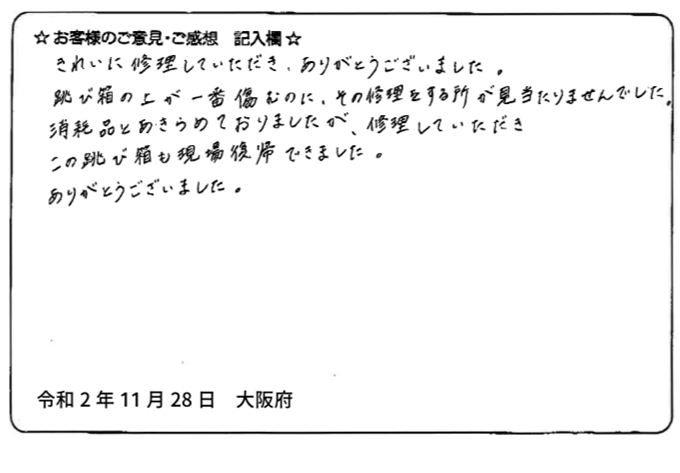 ☆お客様のご意見・ご感想　記入欄☆
きれいに修理していただき、ありがとうございました。
跳び箱の上が一番傷むのに、その修理をする所が見当たりませんでした。
消耗品とあきらめておりましたが、修理していただき
この跳び箱も現場復帰できました。
ありがとうございました。
令和2年11月28日　大阪府